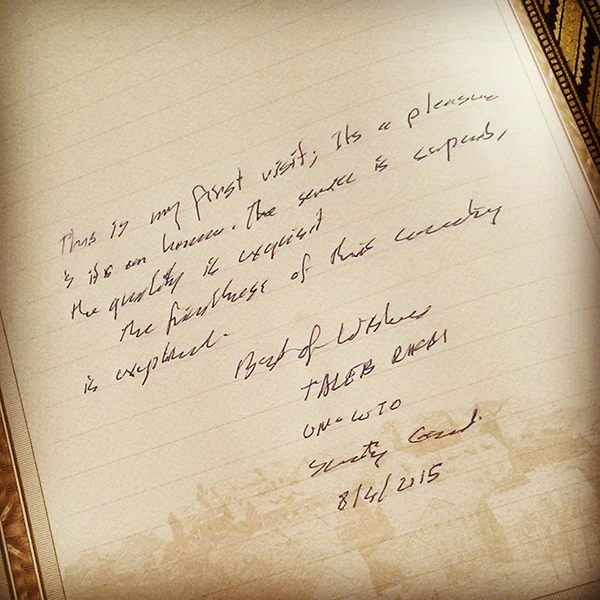 This is my first visit; Its a pleasure
& its an honour. The service is superb,
the quality is exquisit
the friendliness of this country
is
Best of Wishes
TALEB RIFAI
UN-WTO
Secretary General.
8/4/2015